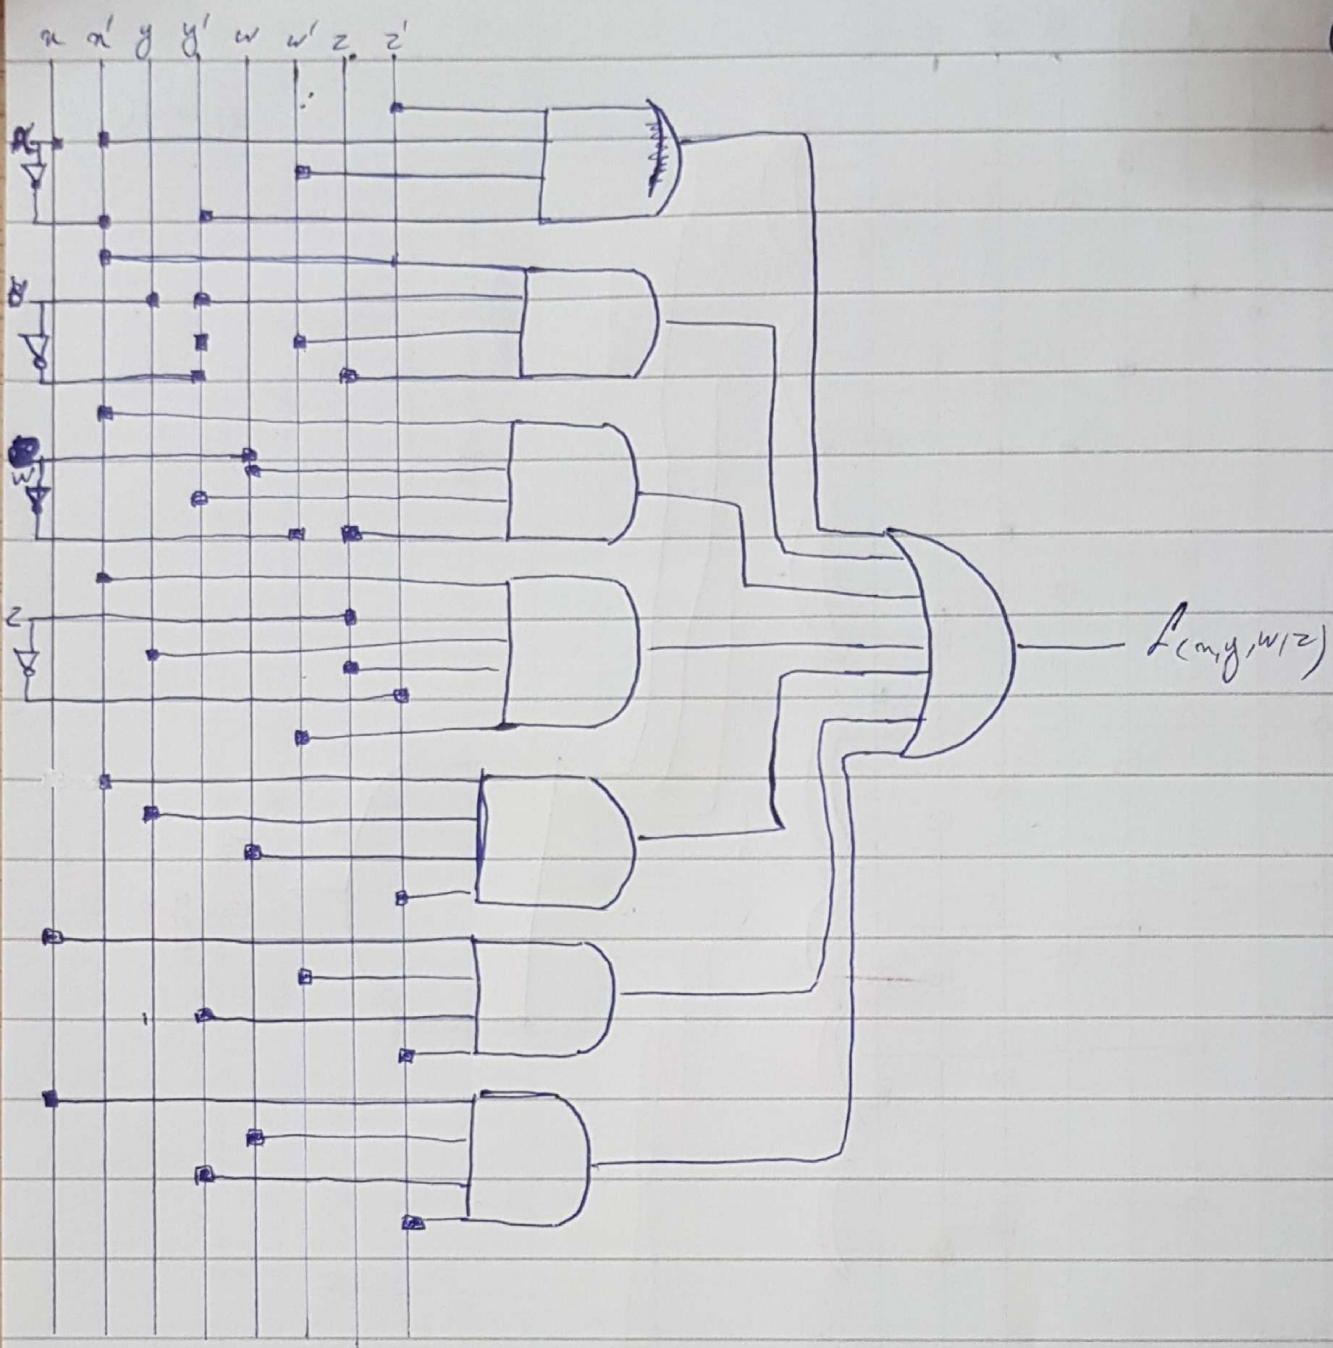 x x' y y' w w' z z'
w
z
f(x,y,w,z)